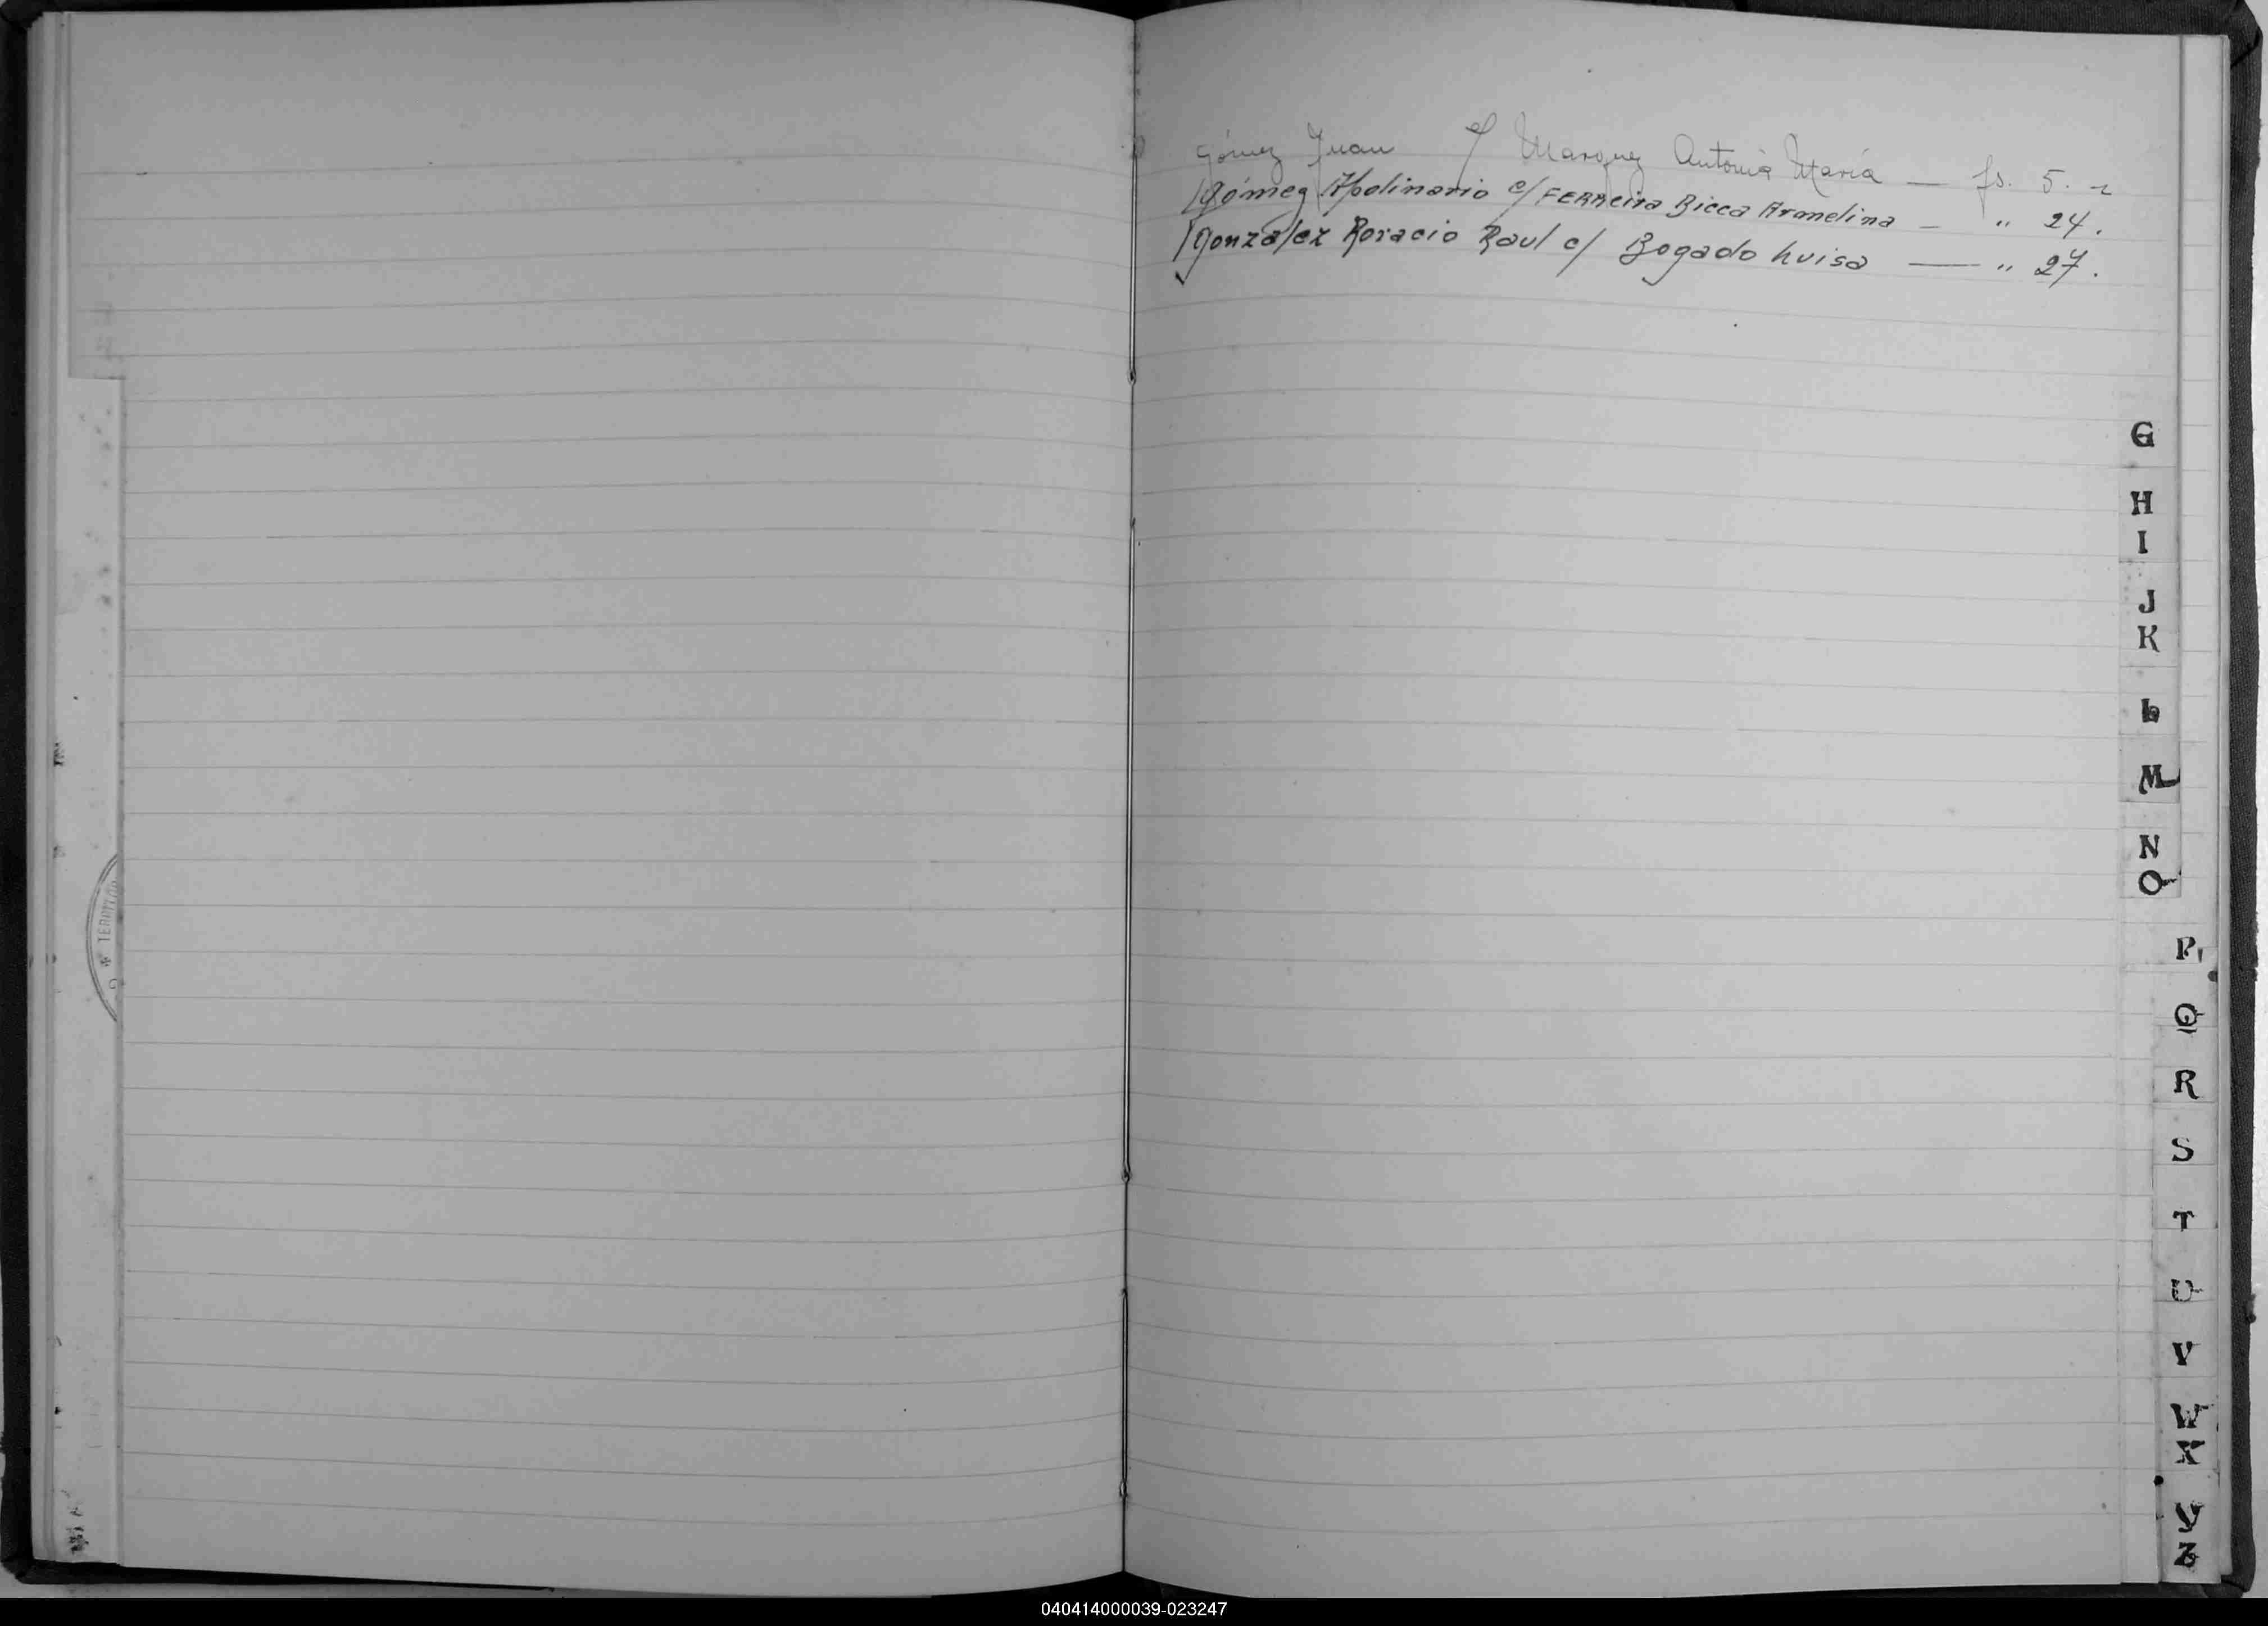 Gómez Juan c/ Marquez Antonia María — fs. 5.
Gómez Apolinario c/ FERReira Bicca Armelina — " 24.
Gonzalez Horacio Raul c/ Bogado Luisa — " 27.
G
H
I
J
K
L
M
N
O
P
Q
R
S
T
U
V
W
X
Y
Z
040414000039-023247